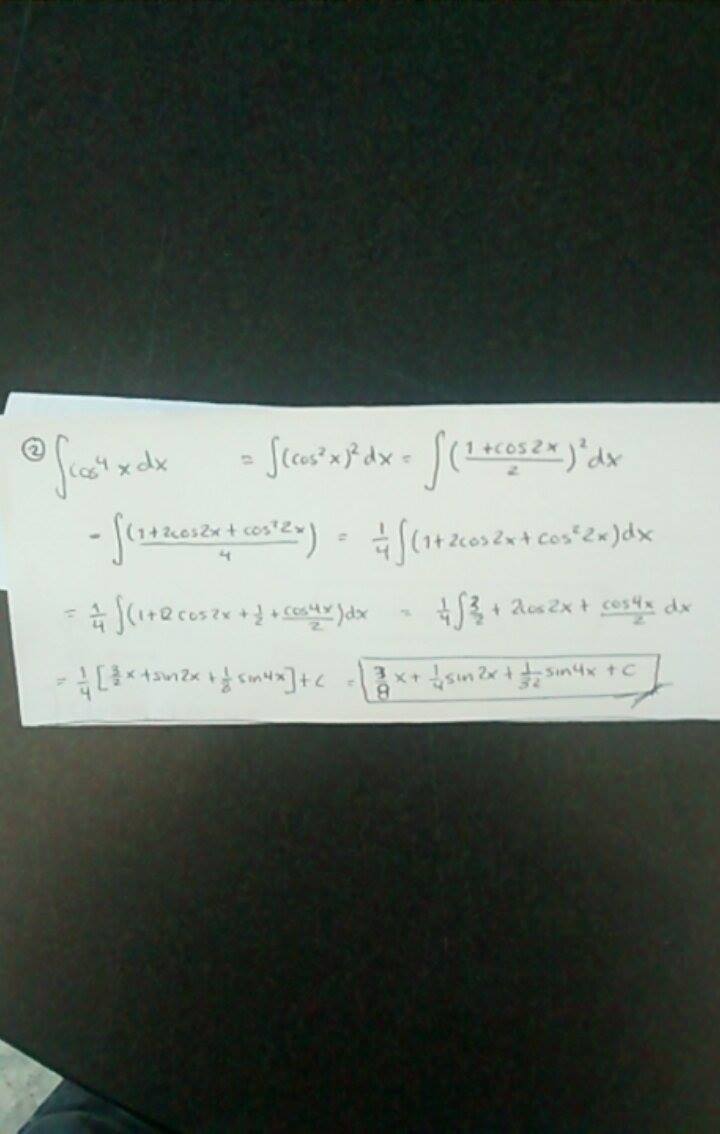 ② ∫cos⁴ x dx = ∫(cos²x)² dx = ∫(1+cos2x/2)² dx
= ∫(1+2cos2x+cos²2x/4) = 1/4 ∫(1+2cos2x+cos²2x)dx
= 1/4 ∫(1+2cos2x+1/2+cos4x/2)dx = 1/4 ∫3/2 + 2cos2x + cos4x/2 dx
= 1/4 [3/2 x + sin2x + 1/8 sin4x] + C = 3/8 x + 1/4 sin2x + 1/32 sin4x + C